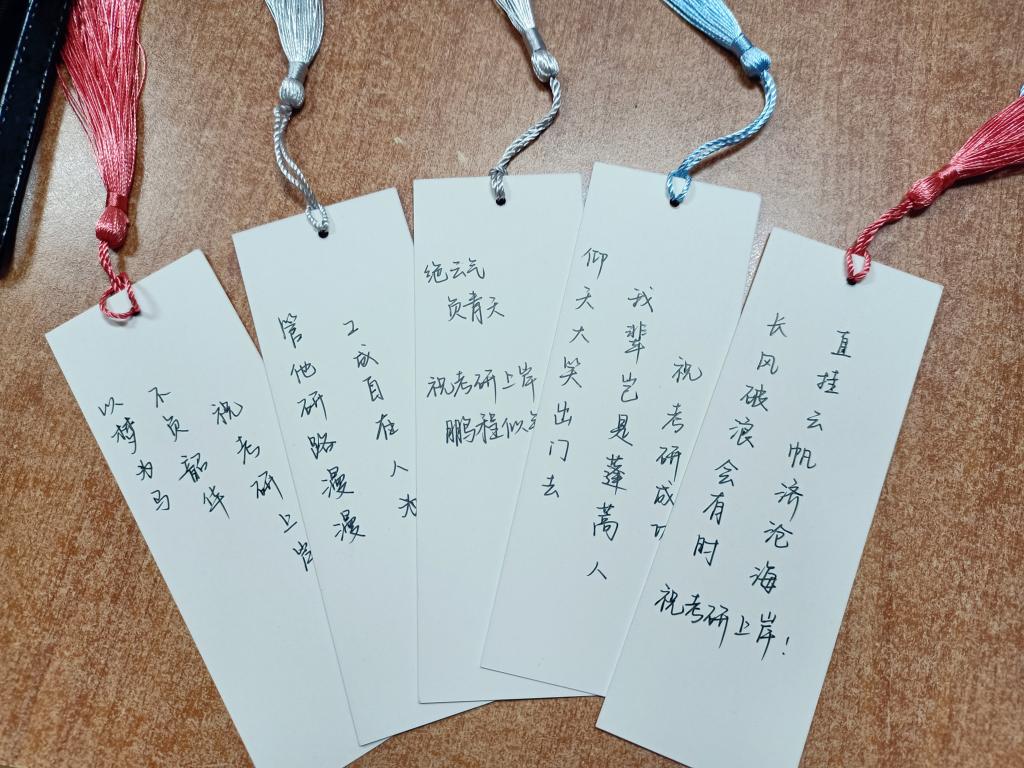 以梦为马
不负韶华
祝考研上岸
管他研路漫漫
工成自在人为
绝云气
负青天
祝考研上岸
鹏程似
仰天大笑出门去
我辈岂是蓬蒿人
祝考研成功
长风破浪会有时
直挂云帆济沧海
祝考研上岸!